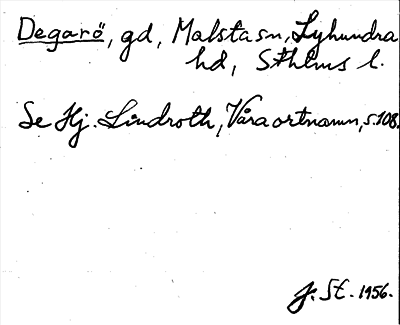 Degarö, gd, Malsta sn, Lyhundra
hd, Sthlms l.
Se Hj. Lindroth, Våra ortnamn, s. 108.
J. St. 1956.